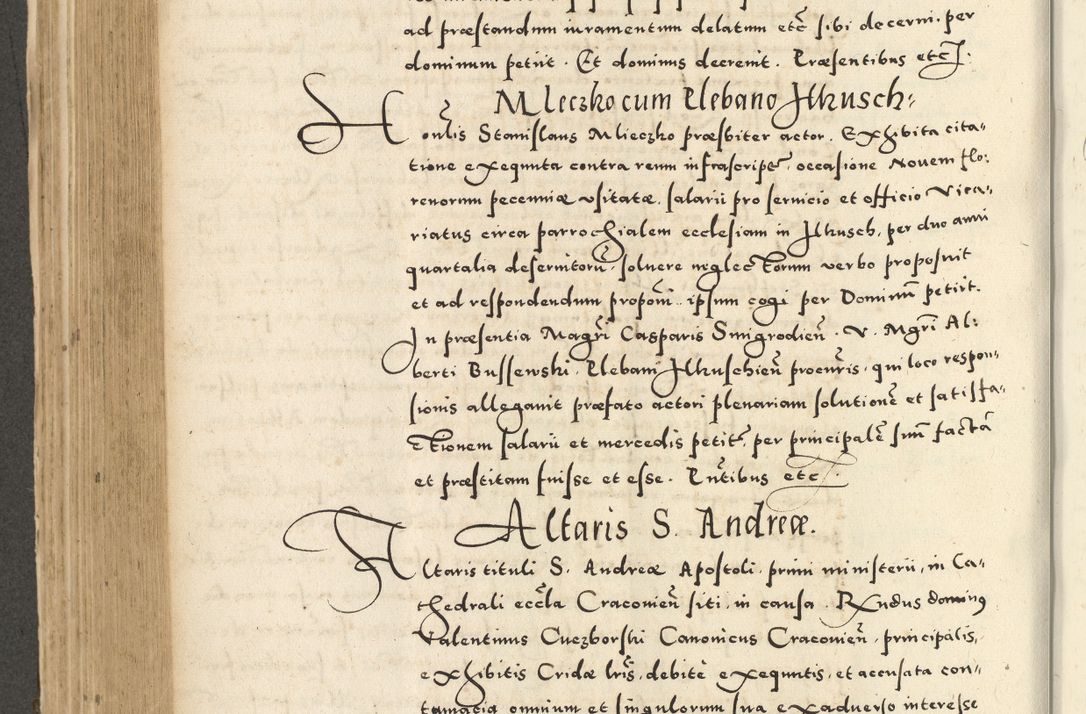 ad præstandum iuramentum delatum etc̃ sibi decerni per
dominum petiit. Et dominus decrevit. Præsentibus etc̃.
Mleczko cum Plebano Ilkusch:
Honlis Stanislaus Mlieczko præsbiter actor. Exhibita cita=
tione exequuta contra reum infrascript̃, occasione Novem flo:
renorum pecenniæ usitatæ, salarii pro servicio et officio vica=
riatus circa parrochialem ecclesiam in Ilkusch, per duo anni
quartalia deservitorũ, solvere neglectorum verbo proposuit
et ad respondendum proponi ipsum cogi per Dominũ petiit.
In præsentia Magr̃i Casparis Smigrodieñ. V. Mgr̃i Al:
berti Bussewski. Plebani Ilkuschieñ procur̃is, qui loco respon=
sionis allegavit præfato actori plenariam solutionẽ et satisfa=
ctionem salarii et mercedis petit̃, per principalẽ suũ factã
et præstitam fuisse et esse. Pñtibus etc̃.
Altaris S. Andreæ.
Altaris tituli S. Andreæ Apostoli, primi ministerii, in Ca=
thedrali eccl̃a Cracovieñ siti, in causa. Rx̃ndus dominus
Valentinus Cuczborski Canonicus Cracovieñ, principalis,
exhibitis Cridæ lr̃is, debitè exequutis, et accusata con=
tumatia omnium et singulorum sua ex adverso interesse